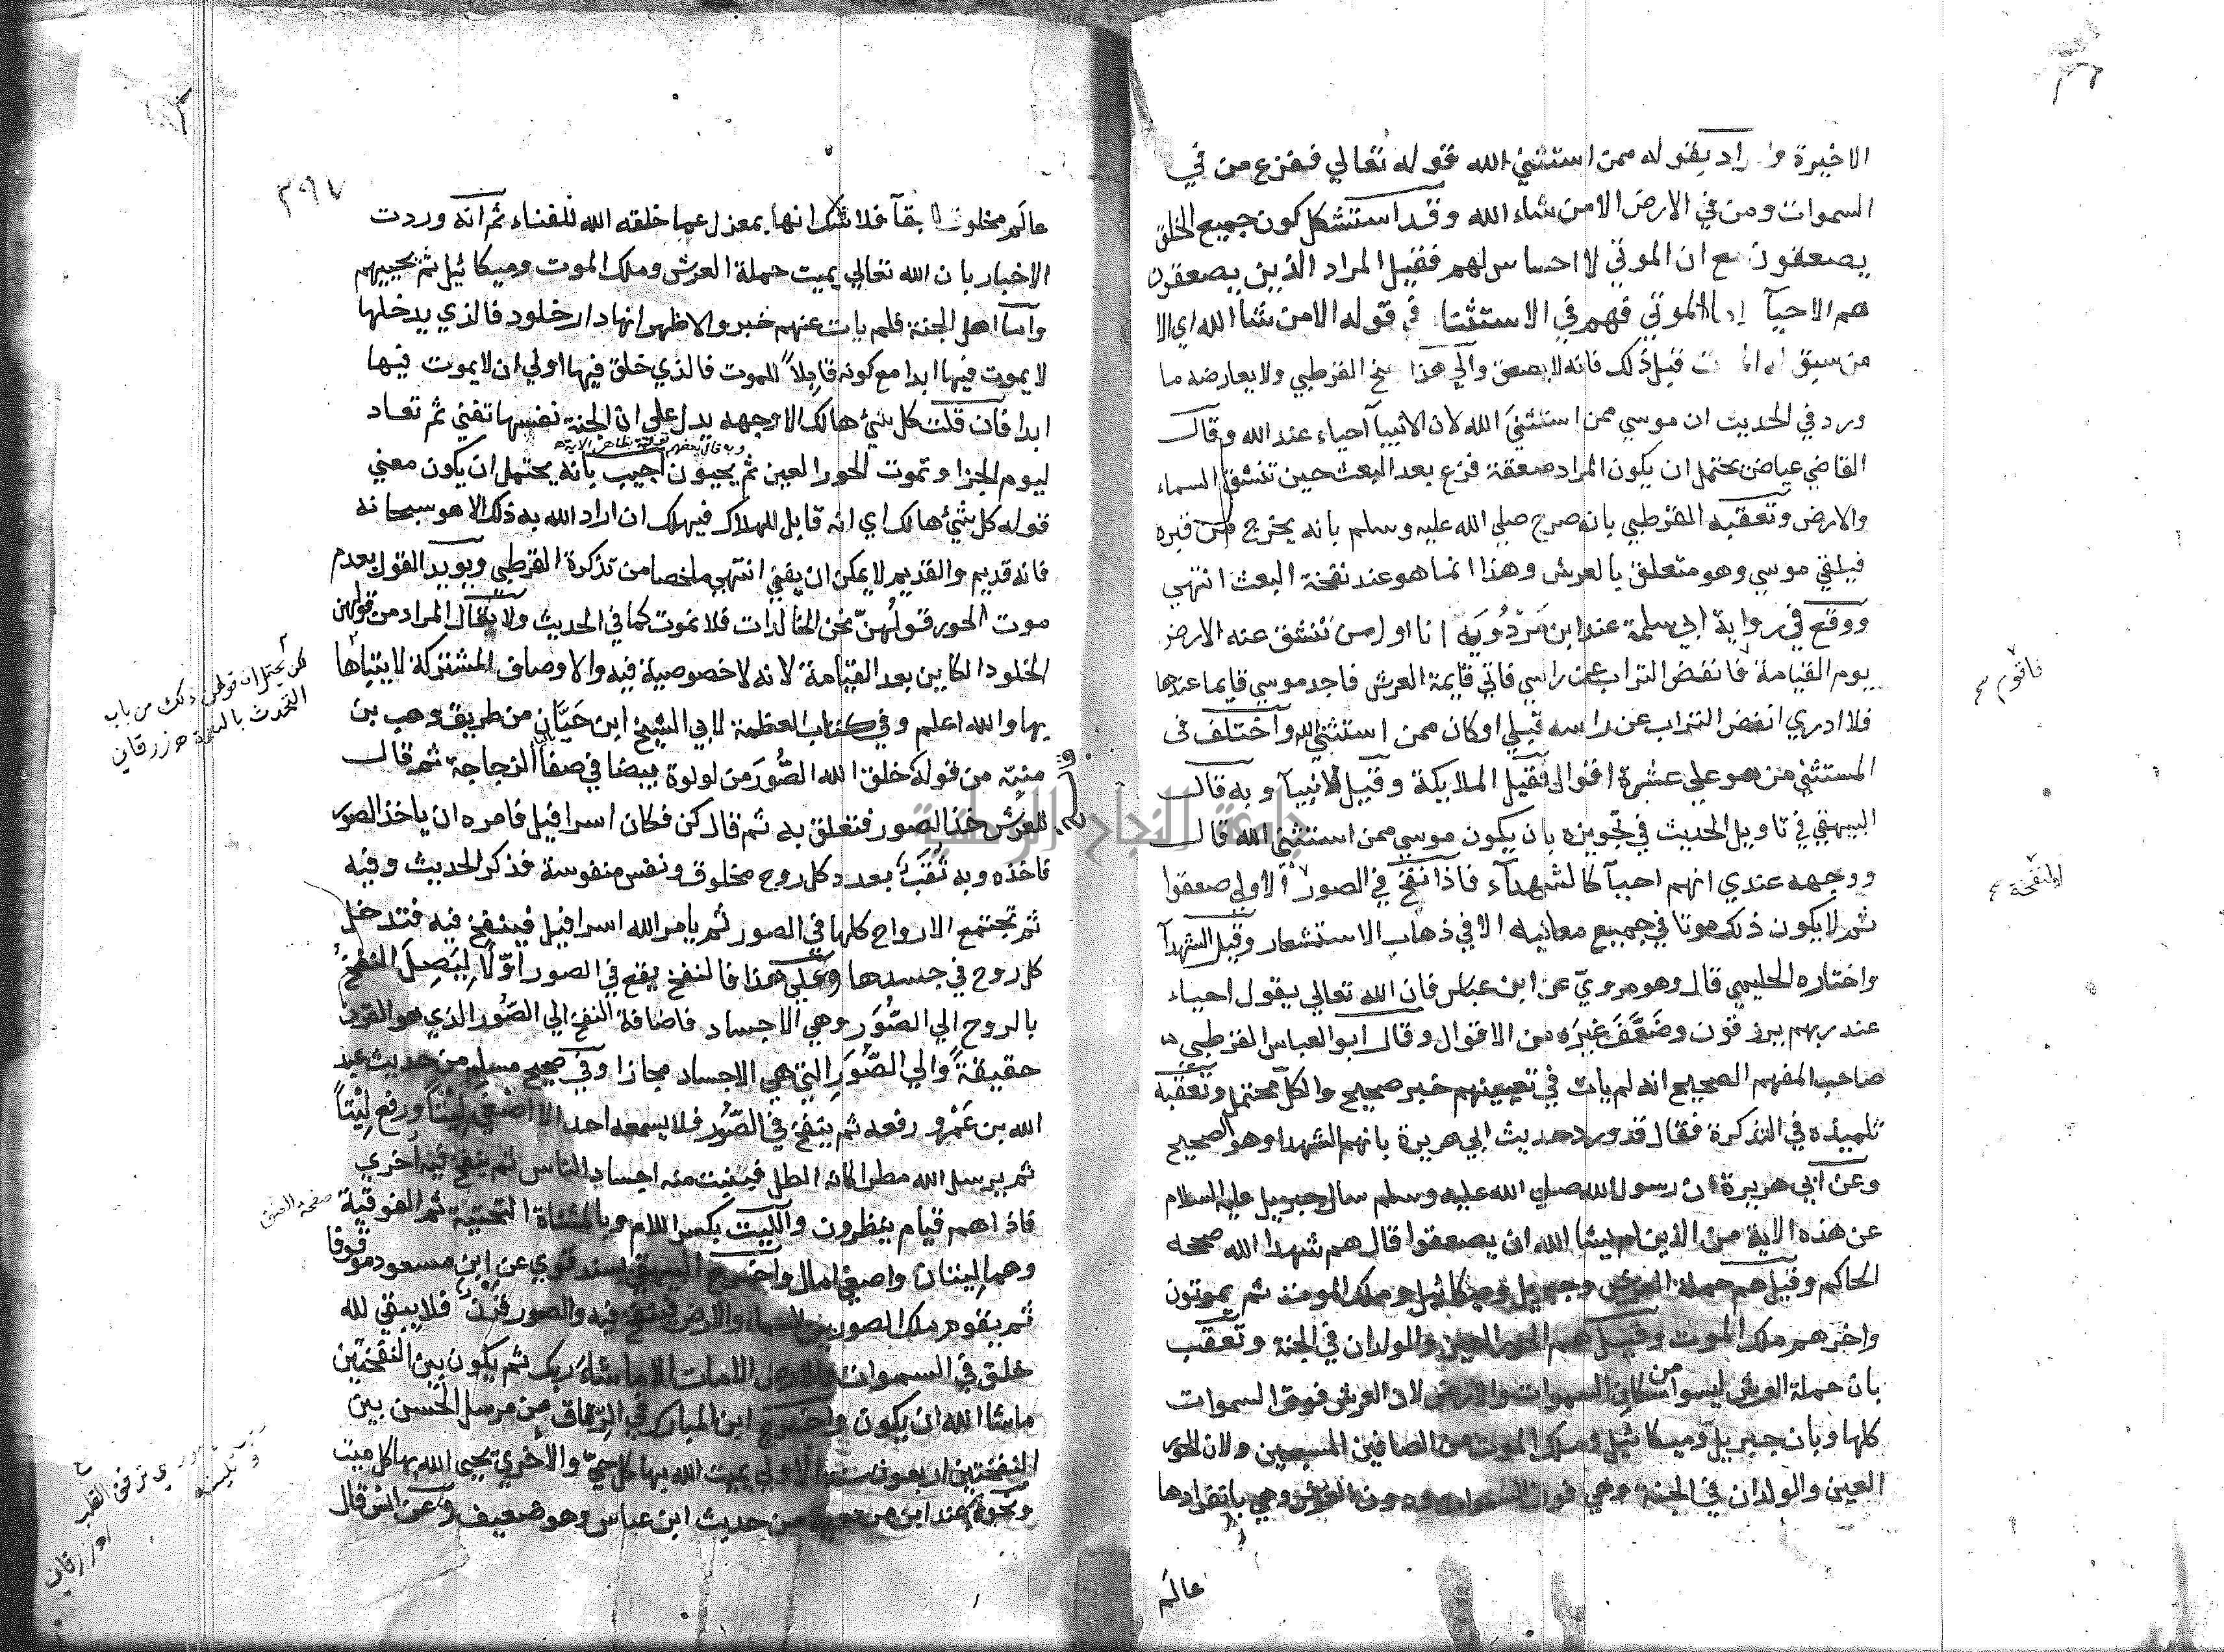 الاخيرة و بقوله ممن استثني الله قوله تعالي ففزع من في
السموات ومن في الارض الا من شاء الله وقد استشكل كون جميع الخلق
يصعقون مع ان الموتي لا احساس لهم فقيل المراد الذين يصعقون
هم الاحيآ الموتي فهم في الاستثنا في قوله الا من شآ الله اي الا
من سبق له قبل ذلك فانه لا يصعق والي هذا القرطبي ولا يعارضه ما
ورد في الحديث ان موسي ممن استثني الله لان الانبيآ احياء عند الله وقال
القاضي عياض يحتمل ان يكون المراد صعقة فزع بعد البعث حين تنشق السماء
والارض وتعقبه القرطبي بانه صرح صلي الله عليه وسلم بانه يخرج من قبره
فيلقي موسي وهو متعلق بالعرش وهذا انما هو عند نفخة البعث انتهي
ووقع في رواية ابي سلمة عند ابن مَرْدُويَه انا اول من تنشق عنه الارض
يوم القيامة فانفض التراب عن راسي فاتي قايمة العرش فاجد موسي قايما عندها
فلا ادري انفض التراب عن راسه قبلي او كان ممن استثني الله واختلف في
المستثني من هو علي عشرة اقوال فقيل الملايكة وقيل الانبيآ وبه قال
البيهقي في تاويل الحديث في تجويزه بان يكون موسي ممن استثني الله قال
ووجهه عندي انهم احيآ كالشهدآء فاذا نفخ في الصور الاولي صعقوا
ثم لا يكون ذلك موتا في جميع معانيه الا في ذهاب الاستشعار وقيل الشهدآ
واختاره الحليمي قال وهو مروي عن ابن عباس فان الله تعالي يقول احياء
عند ربهم يرزقون وضَعَّفَ غيرَه من الاقوال وقال ابو العباس القرطبي
صاحب المفهم الصحيح انه لم يات في تعيينهم خبر صحيح والكل محتمل وتعقبه
تلميذه في التذكرة فقال قد ورد حديث ابي هريرة بانهم الشهدا وهو الصحيح
وعن ابي هريرة ان رسول الله صلي الله عليه وسلم سال جبريل عليه السلام
عن هذه الاية من الذين لم يشا الله ان يصعقوا قال هم شهدا الله صححه
الحاكم وقيل هم حملة العرش وجبريل وميكائيل وملك الموت ثم يموتون
واخرهم ملك الموت وقيل هم الحور العين والولدان في الجنة وتعقب
بان حملة العرش ليسوا من سكان السموات والارض لان العرش فوق السموات
كلها وبان جبريل وميكائيل وملك الموت من الصافين المسبحين ولان الحور
العين والولدان في الجنة وهي فوق السموات ودون العرش وهي بانفرادها
عالم
فاقوم
النفخة
٣٩٧
عالَم مخلوق للبقآ فلا شك انها بمعزل عما خلقه الله للفناء ثم انه وردت
الاخبار بان الله تعالي يميت حملة العرش وملك الموت وميكائيل ثم يحييهم
واما اهل الجنة فلم يات عنهم خبر والاظهر انها دار خلود فالذي يدخلها
لا يموت فيها ابدا مع كونه قابلاً للموت فالذي خلق فيها اولي ان لا يموت فيها
ابدا فان قلت كل شيء هالك الا وجهه يدل علي ان الجنة نفسها تفني ثم تعاد
ليوم الجزا وتموت الحور العين ثم يحيون اجيب بانه يحتمل ان يكون معني
قوله كل شيء هالك اي انه قابل للهلاك فيهلك ان اراد الله به ذلك الا هو سبحانه
فانه قديم والقديم لا يمكن ان يفني انتهي ملخصا من تذكرة القرطبي ويويد القول بعدم
موت الحور قولُهنّ نحن الخالدات فلا نموت كما في الحديث ولا يقال المراد من قولهن
الخلود الكاين بعد القيامة لانه لا خصوصية فيه والاوصاف المشتركة لا يتباها
بها والله اعلم وفي كتاب العظمة لابي الشيخ ابن حَيَّان من طريق وهب بن
منبّه من قوله خلق الله الصُّورَ من لولوة بيضا في صفآ الزجاجة ثم قال
للعرش خذ الصور فتعلق به ثم قال كن فكان اسرافيل فامره ان ياخذ الصور
فاخذه وبه ثُقَبٌ بعدد كل روح مخلوق ونفس منفوسة فذكر الحديث وفيه
ثم تجتمع الارواح كلها في الصور ثم يامر الله اسرافيل فينفخ فيه فتدخل
كل روح في جسدها وعلي هذا فالنفخ يقع في الصور اوّلا لِيَصِلَ النفخُ
بالروح الي الصُّوَر وهي الاجساد فاضافة النفخ الي الصُّور الذي هو القرن
حقيقةً والي الصُّوَرِ التي هي الاجساد مجازا وفي صحيح مسلم من حديث عبد
الله بن عَمْرو رفعه ثم ينفخ في الصُّور فلا يسمعه احد الا اصْغَي لِيْتًا ورفع لِيْتًا
ثم يرسل الله مطرا كانه الطل فينبت منه اجساد الناس ثم ينفخ فيه اخري
فاذا هم قيام ينظرون والليت بكسر اللام وبالمثناة التحتية ثم الفوقية
وهما لِيتان واصغي امال واخرج البيهقي بسند قوي عن ابن مسعود موقوفا
ثم يقوم ملك الصور بين السماء والارض فينفخ فيه والصور قرن فلا يبقي لله
خلق في السموات والارض الا مات الا ما شآء ربك ثم يكون بين النفختين
ما شا الله ان يكون واخرج ابن المبارك في الرقاق من مرسل الحسن بين
النفختين اربعون سنة الاولي يميت الله بها كل حي والاخري يحيي الله بها كل ميت
ونحوه عند ابن مردويه من حديث ابن عباس وهو ضعيف وعن انس قال
وبه قال بعضهم ظاهر الاية
لكن يحتمل ان قولهن ذلك من باب
التحدث بالنعمة ه زرقاني
صفحة العنق
القلب
زرقاني
جامعة النجاح الوطنية